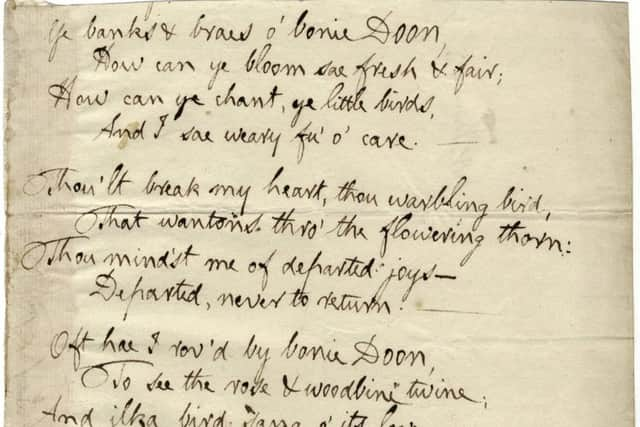 Ye banks & braes o' bonie Doon,
How can ye bloom sae fresh & fair;
How can ye chant, ye little birds,
And I sae weary fu' o' care. —
Thou'lt break my heart, thou warbling bird,
That wantons thro' the flowering thorn:
Thou minds't me of departed joys—
Departed, never to return. —
Oft hae I rov'd by bonie Doon,
To see the rose & woodbine twine;
And ilka bird sang o' its luve